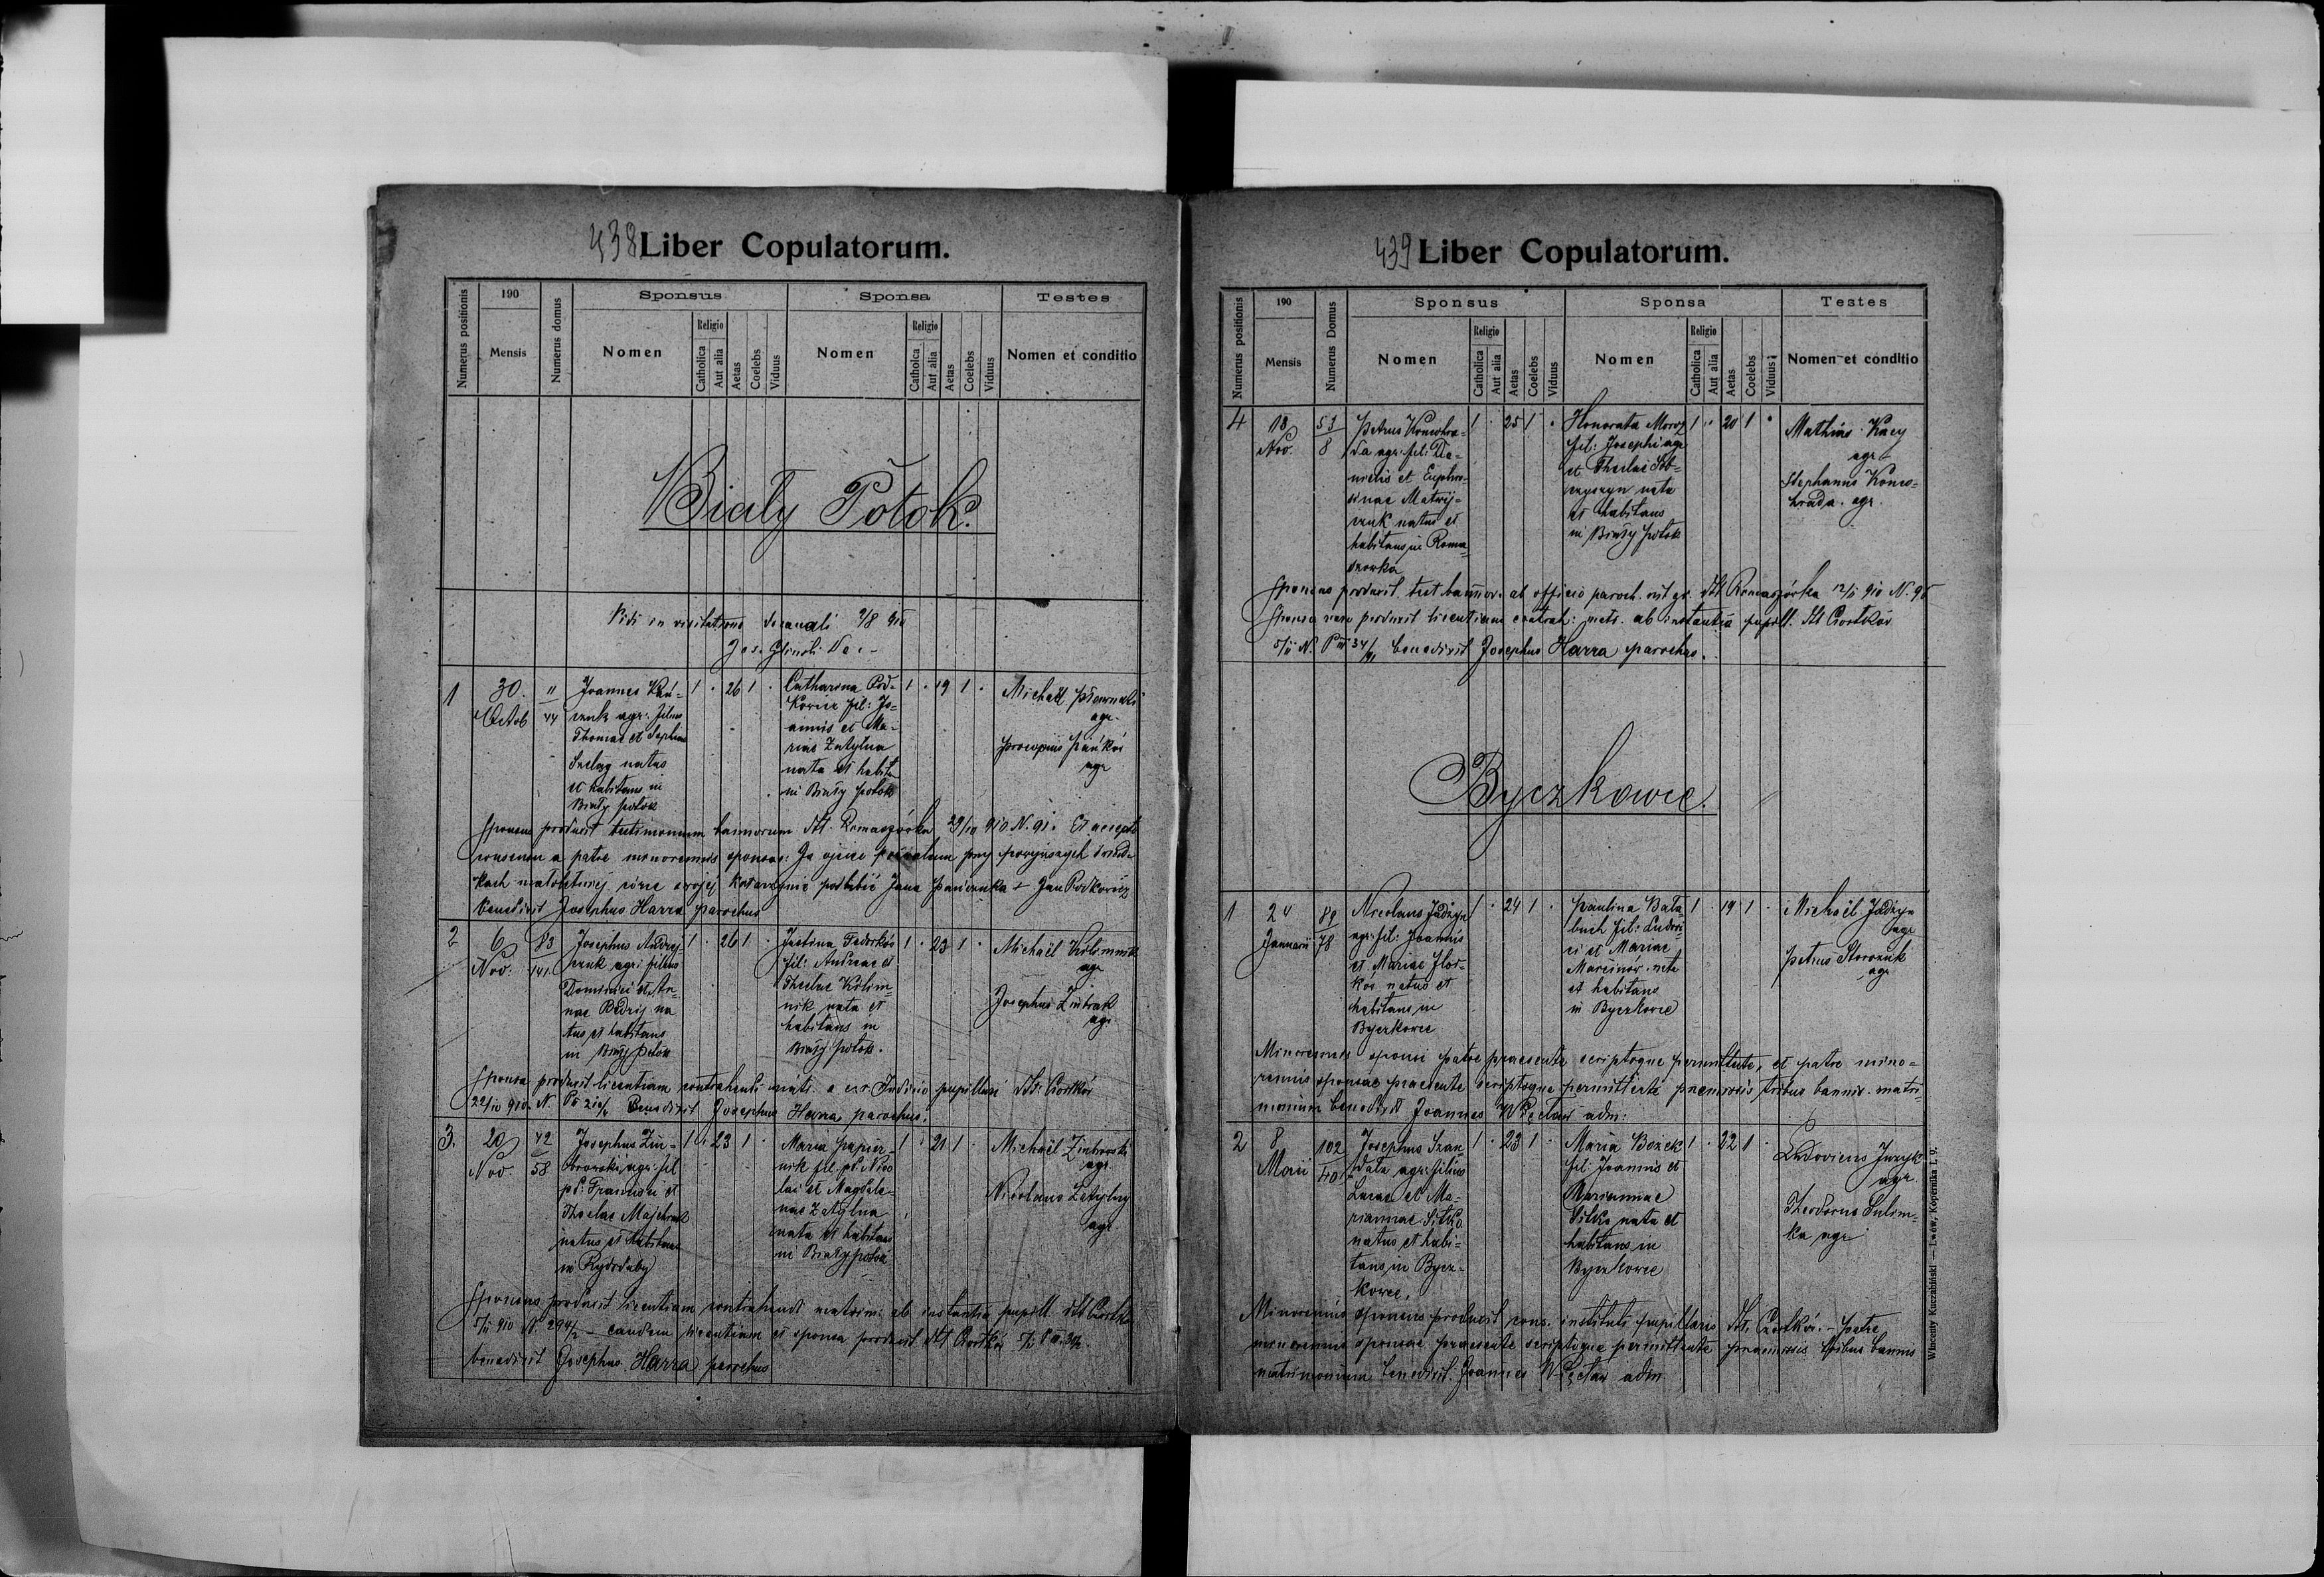 438 Liber Copulatorum.
Numerus positionis
190
Mensis
Numerus domus
Sponsus
Nomen
Religio
Catholica
Aut alia
Aetas
Coelebs
Viduus
Sponsa
Nomen
Religio
Catholca
Aut alia
Aetas
Coelebs
Viduus
Testes
Nomen et conditio
Biały Potok.
Vidi in visitatione decanali 9/8 910
1
30.
Octob
11
44
Joannes
czuk agr: filius
Thomae et
natus
et habitans in
Biały potok
1 . 26 1 .
Catharina Pod-
kovicz fil: Jo-
annis et Ma-
riae Zatylna
nata et habita
in Biały potok
1 . 19 1 .
Michael
agr.
Procopius
agr
Sponsus produxit testimonium bannorum dtt. Romaszówka 29/10 910 N. 91. Et accepto
consensu a patre minorennis sponsae: Ja ojciec
małoletniej córce swojej Katarzynie Jana + Jan Podkovicz
benedixit Josephus Harra parochus
2
6
Nov.
83
141
Josephus Andrej
czuk agr: filius
Dominici et An-
nae na
tus et habitans
in Biały Potok
1 . 26 1 .
Justina Fedorków
fil: Andreae et
Theclae Kilim-
nik nata et
habitans in
Biały potok.
1 . 23 1 .
Michaël Kilimnik
agr
Josephus
agr
Sponsa produxit licentiam contrahendi matr. a dtt: Czortków
22/10 910 N. Benedixit Josephus Harra parochus.
3.
20
Nov.
42
58
Josephus Zim-
browski agr: fil
pd: Francisci et
Theclae
natus et habitans
in Rydoduby
1 . 23 1 .
Maria Papier-
nik fil. pd. Nico
lai et Magdale-
nae Zatylna
nata et habitans
in Biały potok
1 . 21 1 .
Michaël Zimbrowski
agr
Nicolaus Zatylny
agr
Sponsus produxit licentiam contrahendi matrim: ab instantia pupill. dtt Czortków
5/11 910 N. 294/2 – eandem licentiam et sponsa produxit dtt Czortków
benedixit Josephus Harra parochus
439 Liber Copulatorum.
Numerus positionis
190
Mensis
Numerus Domus
Sponsus
Nomen
Religio
Catholica
Aut alia
Aetas
Coelebs
Viduus
Sponsa
Nomen
Religio
Catholica
Aut alia
Aetas
Coelebs
Viduus
Testes
Nomen et conditio
4
18
Nov.
53
8
Petrus Konowra-
da agr. fil: Da-
nielis et Euphro-
sinae Matwij-
czuk natus et
habitans in Roma
szowka
1 . 25 1 .
Honorata Moroz
fil: Josephi agr
et Theclae Sob-
nata
et habitans
in Biały potok
1 . 20 1 .
Mathias Kaey
agr
Stephanus Konow-
hrada. agr.
Sponsus produxit test. bannor. ab officio paroch. rit gr. dtt Romaszówka 12/11 910 N. 95
Sponsa vero produxit licentiam contrah: matr. ab instantia pupill. dtt Czortków
benedixit Josephus Harra parochus.
Byczkowce.
1
24
Januarii
89
78
Nicolaus Jadżyn
agr: fil: Joannis
et Mariae
natus et
habitans in
Byczkowce
1 . 24 1 .
Paulina Bała
buch fil: Ludovi
ci et Mariae
Marcinów nata
et habitans
in Byczkowce
1 . 19 1 .
Michaël Jadżyn
agr
Petrus Storozuk
agr
Minorennis sponsi patre praesente scriptoque permittente, et patre mino=
rennis sponsae praesente scriptoque permittente praemissis tribus bannis matri-
monium benedixit Joannes adm:
2
8
Maii
102
110
Josephus Szan
data agr: filius
Lucae et Ma-
riannae Sitko
natus et habi-
tans in Bycz-
kowce.
1 . 23 1 .
Maria Bezek
fil: Joannis et
Mariannae
Sitko nata et
habitans in
Byczkowce
1 . 22 1 .
Ludovicus Juzyk
agr.
Theodorus Sulim-
ka agr
Minorennis sponsus produxit cons. instituti pupillaris dtt. Czortków. – Patre
minorennis sponsae praesente scriptoque permittente praemissis tribus bannis
matrimonium benedixit Joannes adm
Wincenty Kuczabiński — Lwów, Kopernika l. 9.